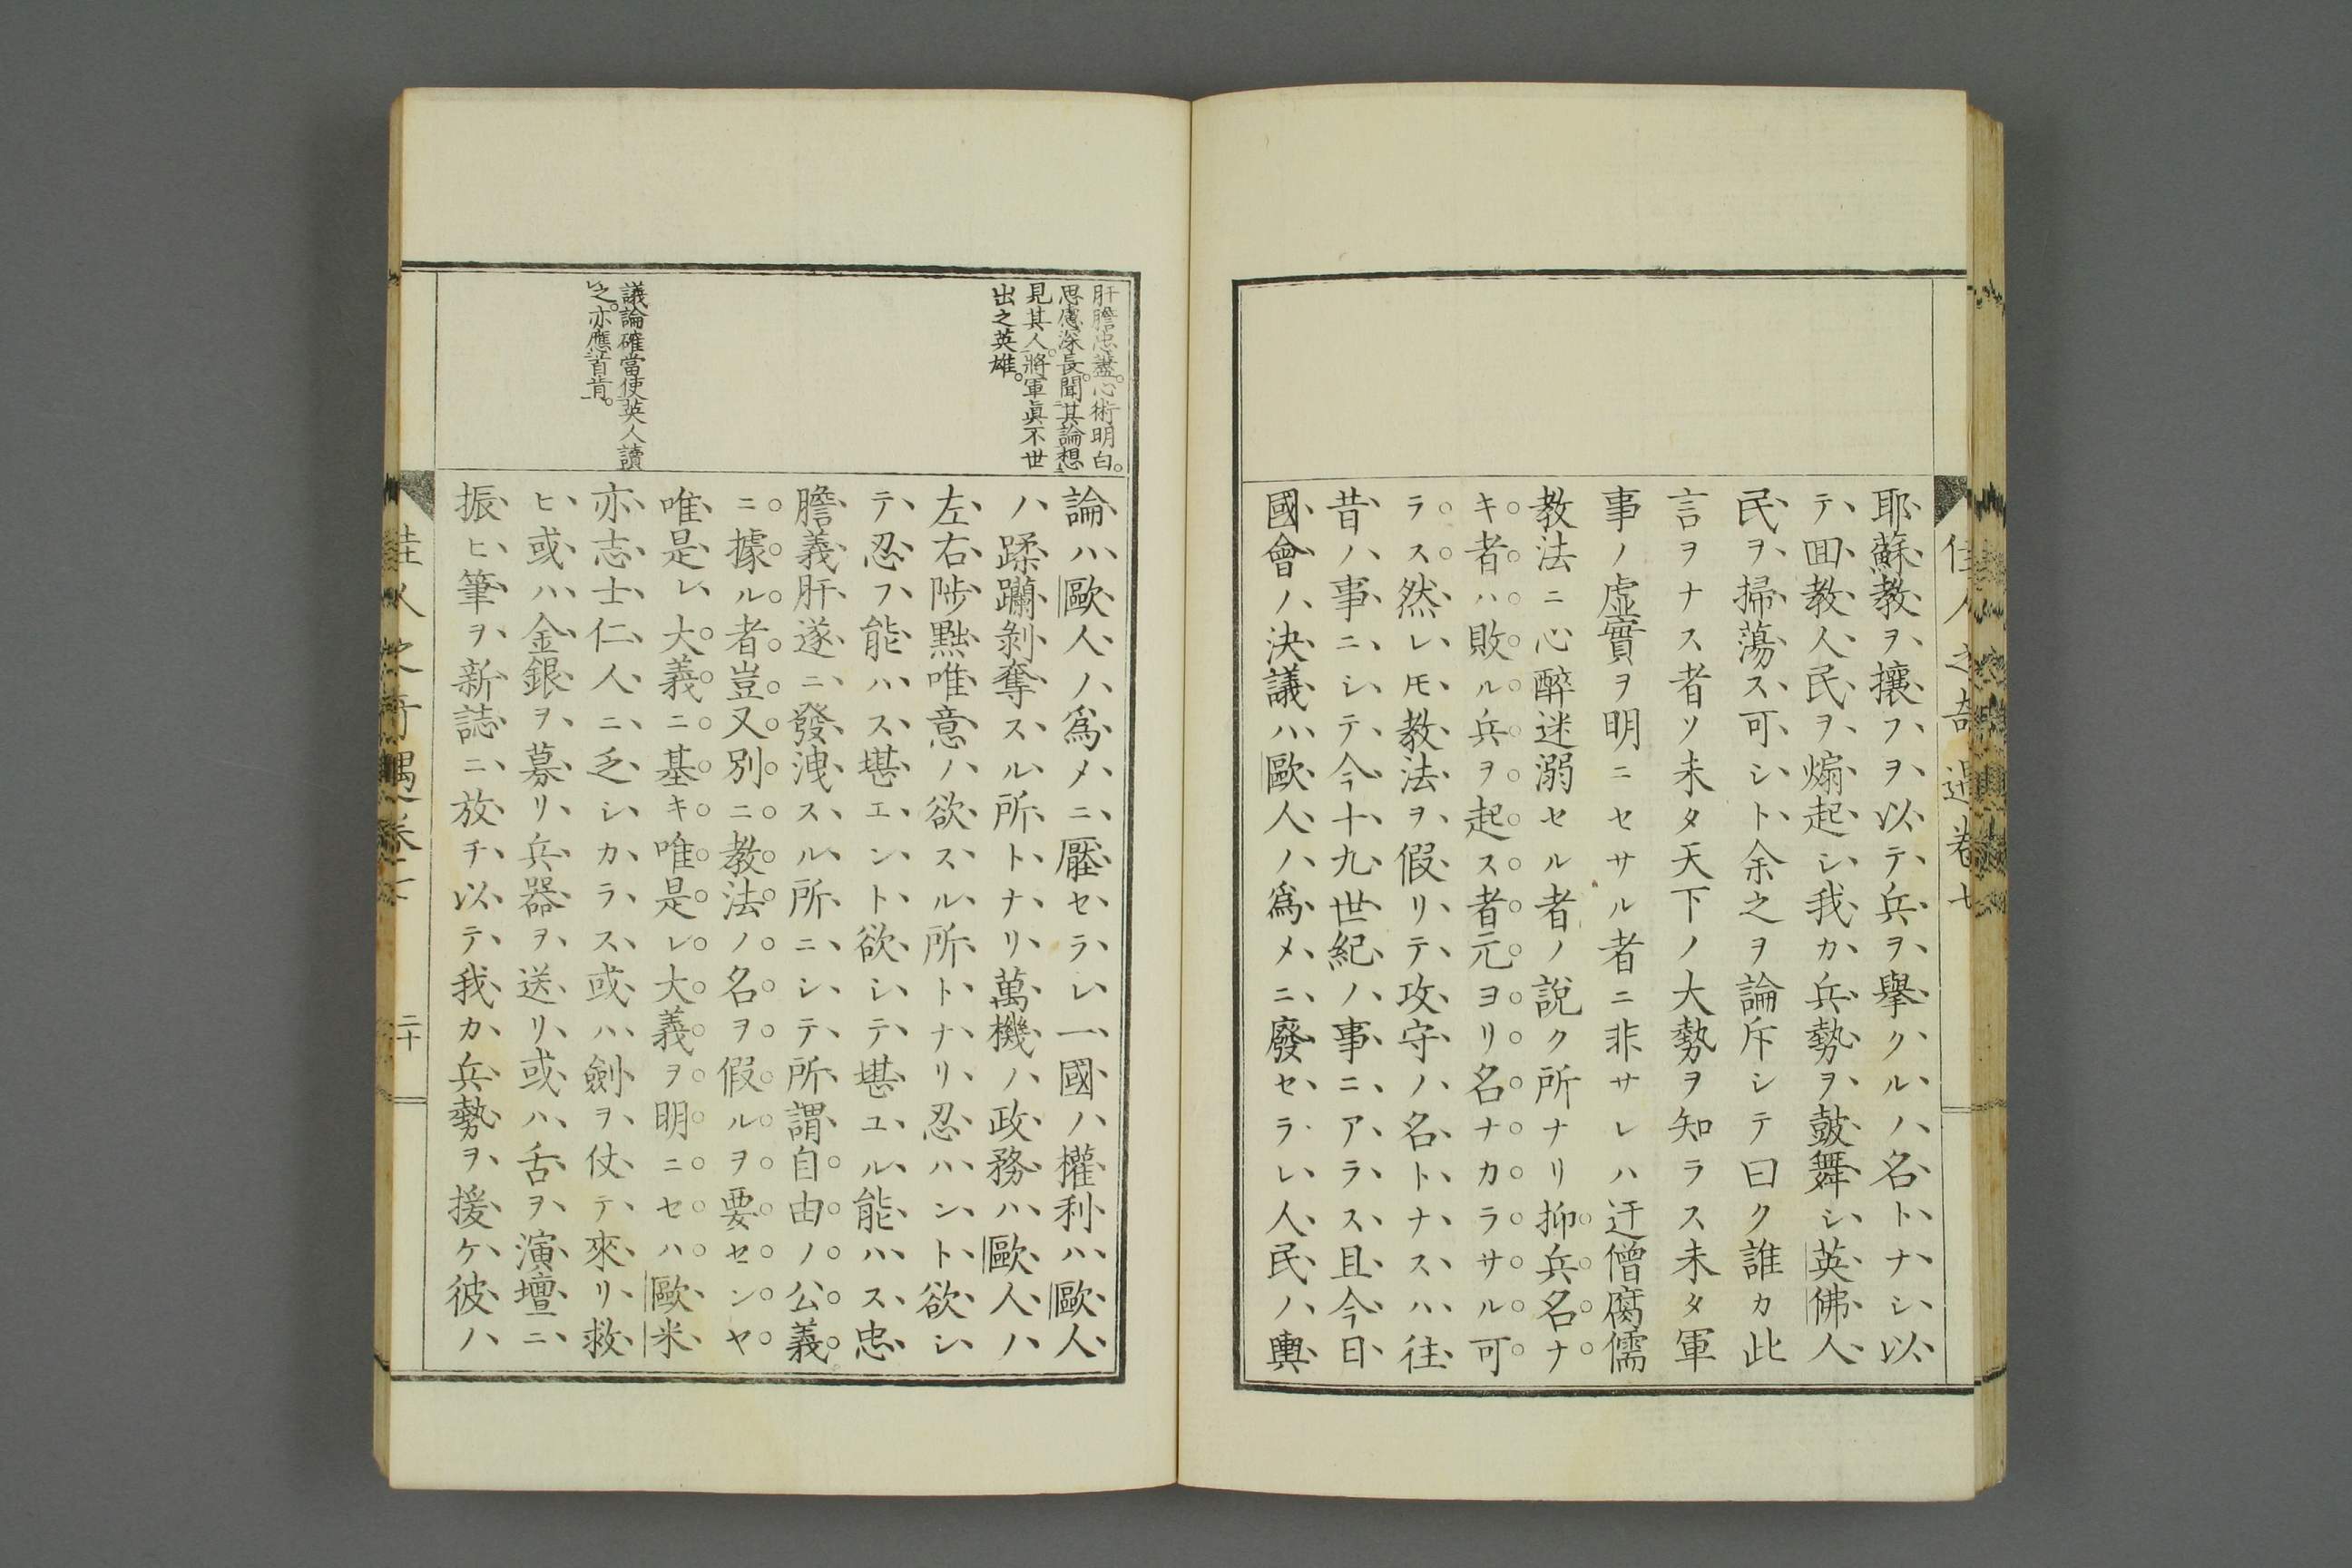 佳人之奇遇卷七
耶蘇教ヲ攘フヲ以テ兵ヲ擧クルノ名トナシ以
テ回教人民ヲ煽起シ我カ兵勢ヲ鼓舞シ英佛人
民ヲ掃蕩ス可シト余之ヲ論斥シテ曰ク誰カ此
言ヲナス者ソ未タ天下ノ大勢ヲ知ラス未タ軍
事ノ虛實ヲ明ニセサル者ニ非サレハ迂僧腐儒
教法ニ心醉迷溺セル者ノ說ク所ナリ抑兵名ナ
キ者ハ敗ル兵ヲ起ス者元ヨリ名ナカラサル可
ラス然レ𪜈教法ヲ假リテ攻守ノ名トナスハ往
昔ノ事ニシテ今十九世紀ノ事ニアラス且今日
國會ノ決議ハ歐人ノ爲メニ廢セラレ人民ノ輿
肝膽忠蓋。心術明白。
思慮深長。聞其論想
見其人。將軍眞不世
出之英雄。
論ハ歐人ノ爲メニ壓セラレ一國ノ權利ハ歐人
ハ蹂躪剝奪スル所トナリ萬機ノ政務ハ歐人ハ
左右陟黜唯意ノ欲スル所トナリ忍ハント欲シ
テ忍フ能ハス堪エント欲シテ堪ユル能ハス忠
膽義肝遂ニ發洩スル所ニシテ所謂自由ノ公義
ニ據ル者豈又別ニ教法ノ名ヲ假ルヲ要センヤ
唯是レ大義ニ基キ唯是レ大義ヲ明ニセハ歐米
議論確當使英人讀
レ之。亦應首肯。
亦志士仁人ニ乏シカラス或ハ劍ヲ仗テ來リ救
ヒ或ハ金銀ヲ募リ兵器ヲ送リ或ハ舌ヲ演壇ニ
振ヒ筆ヲ新誌ニ放チ以テ我カ兵勢ヲ援ケ彼ノ
佳人之奇遇卷七
二十